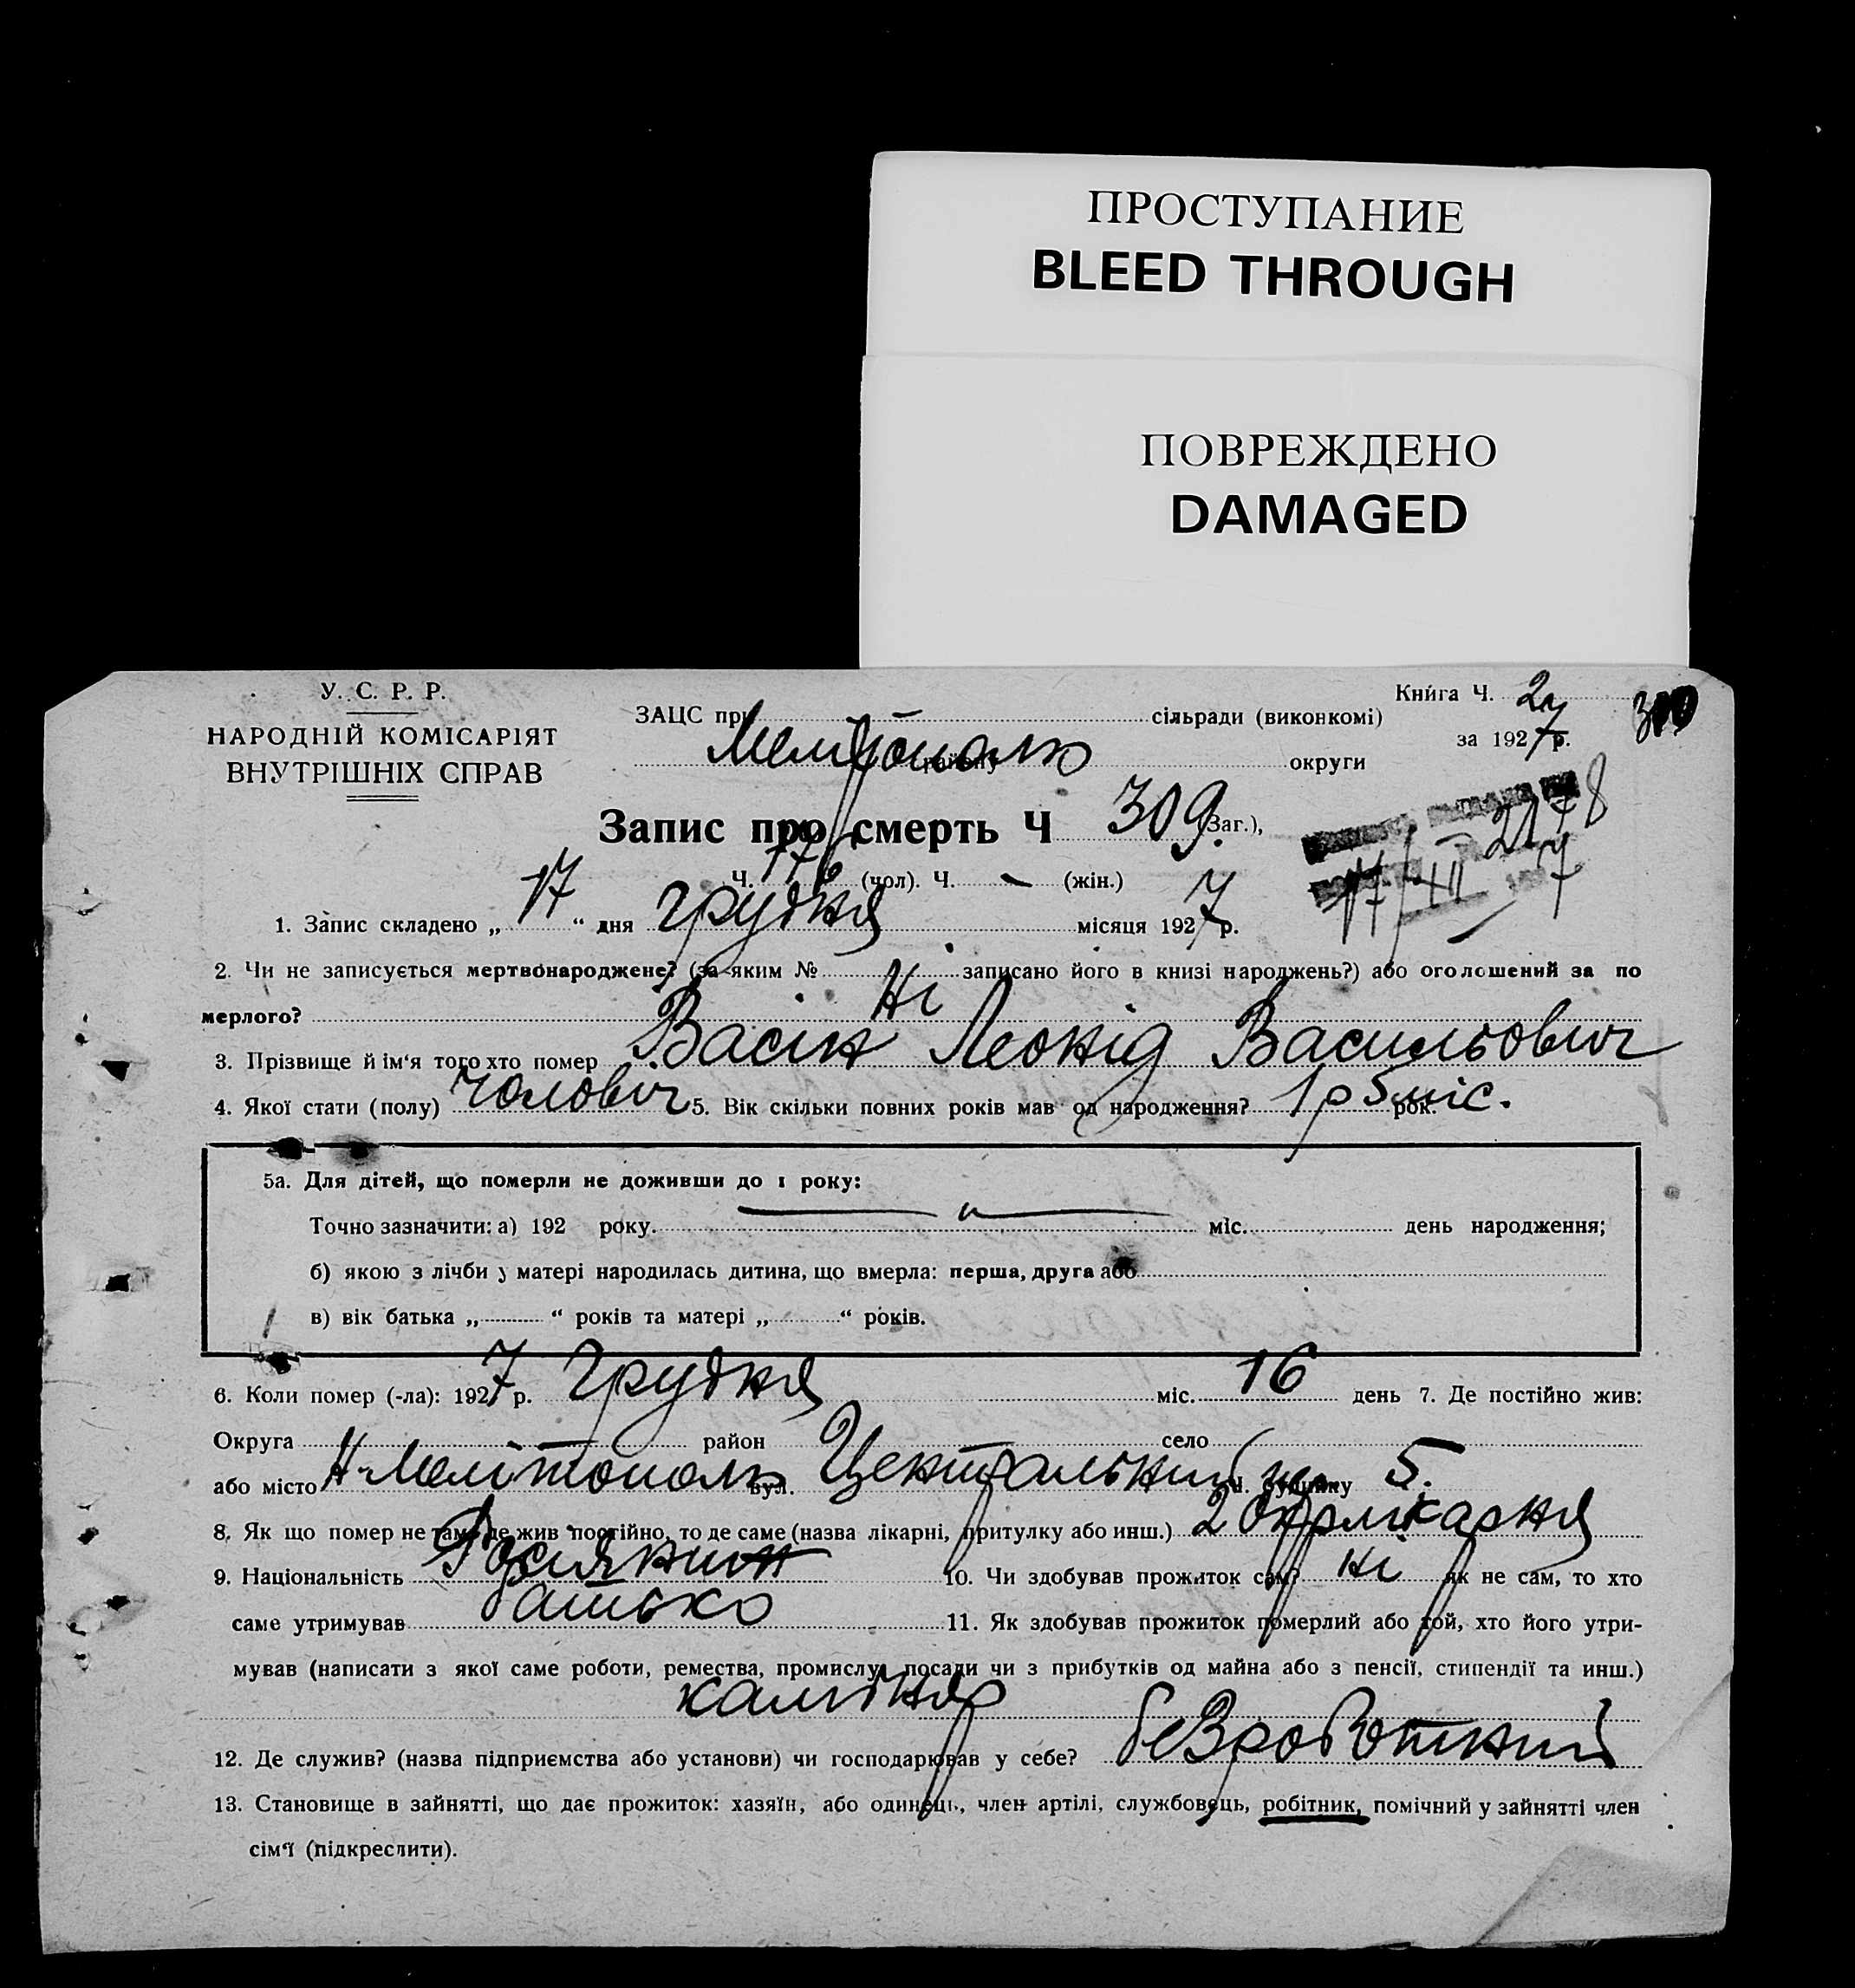 ПРОСТУПАНИЕ
BLEED THROUGH
ПОВРЕЖДЕНО
DAMAGED
У. С. Р. Р.
НАРОДНІЙ КОМІСАРІЯТ
ВНУТРІШНІХ СПРАВ
Книга Ч. 2
за 1927 р.
ЗАЦС при сільради (виконкомі)
району округи
Запис про смерть Ч 309 (Заг.),
Ч. 176 (чол). Ч. - (жін.)
17/XII 7
1. Запис складено „ 17 “ дня грудня місяця 1927 р.
2. Чи не записується мертвонароджене? (за яким № записано його в книзі народжень?) або оголошений за по
мерлого? Ні
3. Прізвище й ім'я того хто помер Васін Леонід Васильович
4. Якої стати (полу) чолович 5. Вік скільки повних років мав од народження? 1 р 5 міс. рок.
5а. Для дітей, що померли не доживши до 1 року:
Точно зазначити: а) 192 року. міс. день народження;
б) якою з лічби у матері народилась дитина, що вмерла: перша, друга або
в) вік батька „ “ років та матері „ “ років.
6. Коли помер (-ла): 1927 р. грудня міс. 16 день 7. Де постійно жив:
Округа район село
або місто Н-Мелітополь вул. Центральний Ч. будинку 5.
8. Як що помер не там, де жив постійно, то де саме (назва лікарні, притулку або инш.) 2 окрлікарня
9. Національність Росіянин 10. Чи здобував прожиток сам? ні як не сам, то хто
саме утримував батько 11. Як здобував прожиток померлий або той, хто його утри-
мував (написати з якої саме роботи, ремества, промислу, посади чи з прибутків од майна або з пенсії, стипендії та инш.)
каміняр
12. Де служив? (назва підприємства або установи) чи господарював у себе? безроботний
13. Становище в зайнятті, що дає прожиток: хазяїн, або одинець, член артілі, службовець, робітник, помічний у зайнятті член
сім'ї (підкреслити).